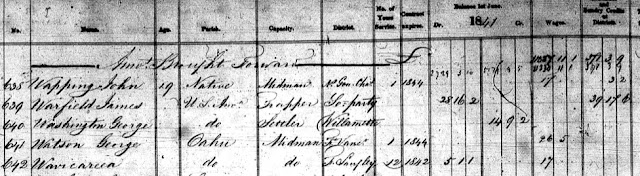 No. Name. Age. Parish. Capacity. District. No. of Years' Service. Contract expires. Balance 1st June. 1841 Dr. Cr. Wages. and Sundry Credits at District.
Amot. Brought Forward £
638 Wapping John 19 Native Midman 1 1844 17 3 2
639 Warfield James Trapper So. party 28 16 2 39 17 6
640 Washington George do Settler Willamette 14 9 2
641 Watson George Oahu Midman F. Vanc. 1 1844 26 5
642 Wavicareea do do F. Langley 12 1842 5 1 1 17